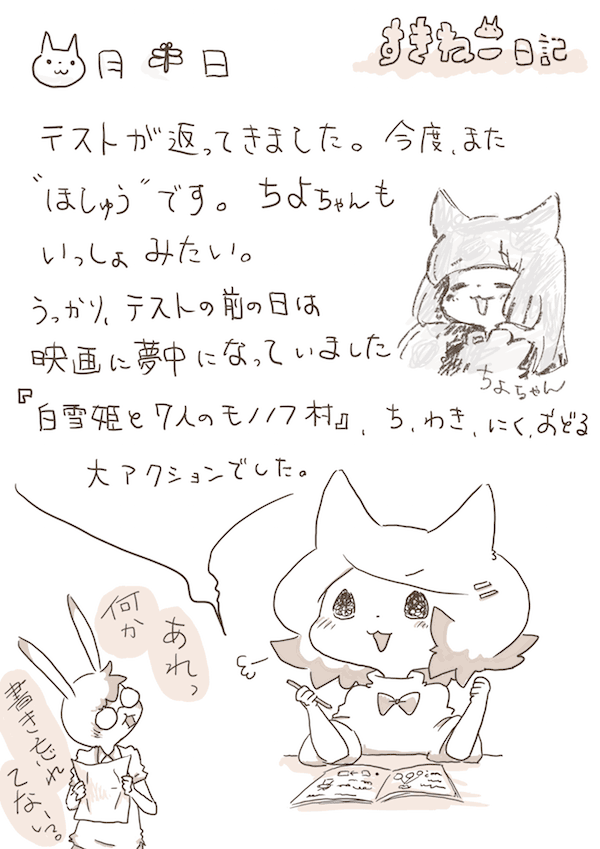 すきねこ日記
月 日
テストが返ってきました。今度、また
"ほしゅう"です。ちよちゃんも
いっしょみたい。
うっかり、テストの前の日は
映画に夢中になっていました
『白雪姫と7人のモノノフ村』、ち、わき、にく、おどる
大アクションでした。
ちよちゃん
あれっ
何か
書き忘れ
てない?。